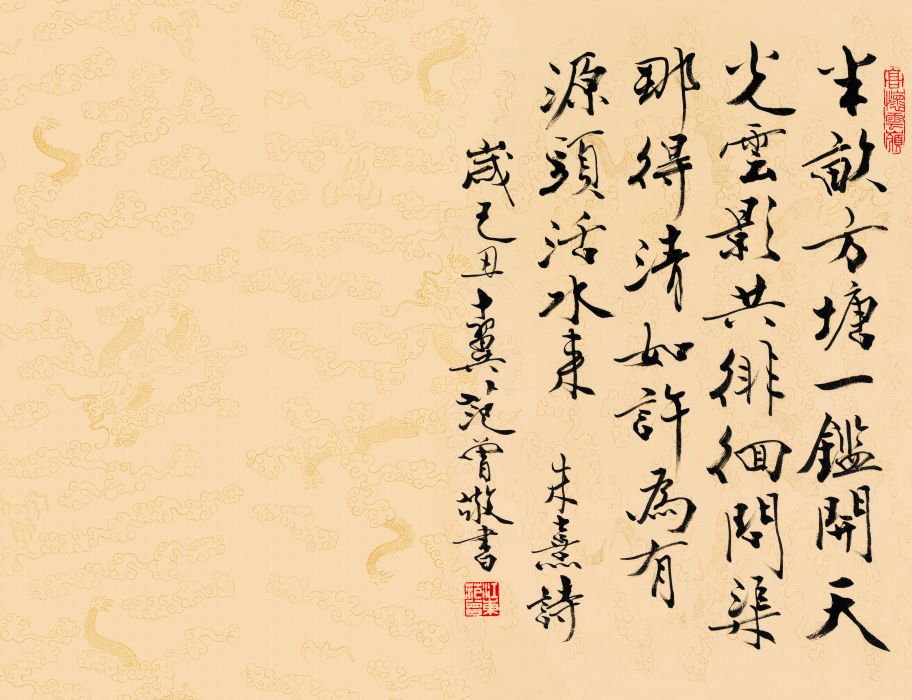 半畝方塘一鑑開天
光雲影共徘徊問渠
那得清如許為有
源頭活水來 朱熹詩
歲己丑十翼范曾敬書